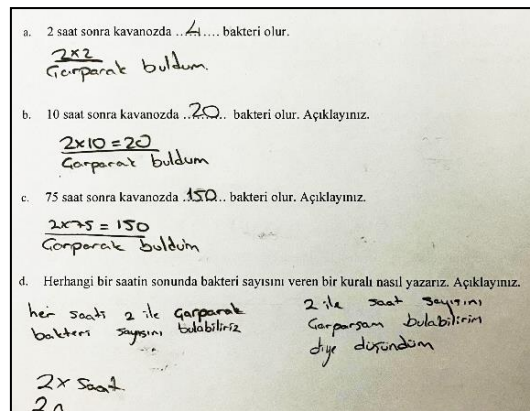 a. 2 saat sonra kavanozda ..4.... bakteri olur.
2x2
Çarparak buldum.
b. 10 saat sonra kavanozda ..20.. bakteri olur. Açıklayınız.
2x10=20
Çarparak buldum
c. 75 saat sonra kavanozda .150... bakteri olur. Açıklayınız.
2x75=150
Çarparak buldum
d. Herhangi bir saatin sonunda bakteri sayısını veren bir kuralı nasıl yazarız. Açıklayınız.
her saati 2 ile çarparak
bakteri sayısını bulabiliriz
2 ile saat sayısını
Çarparsam bulabilirim
diye düşündüm
2x Saat
2n